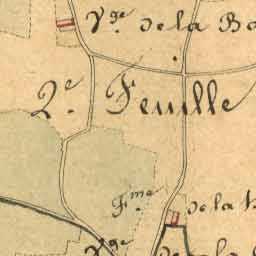 Vge. de la Ba
2e. Feuille
Fme de la
Vge de la